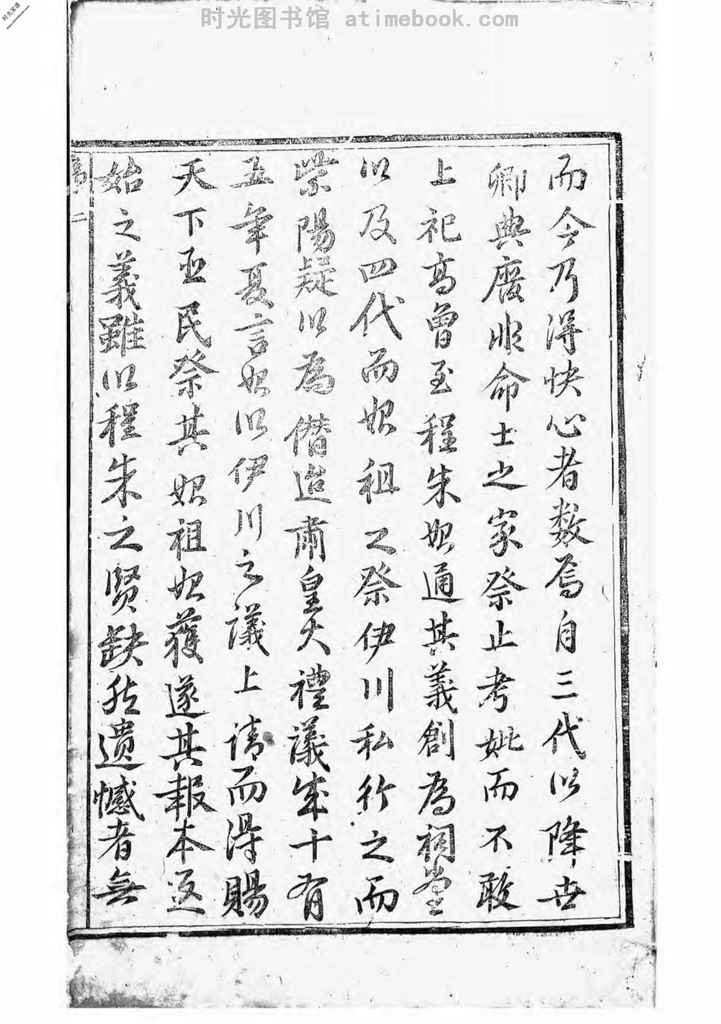 时光图书馆 atimebook.com
时光图书馆
而今乃得快心者数焉自三代以降世
卿典廢非命士之家祭止考妣而不敢
上祀高曾至程朱始通其義創為祠堂
以及四代而始祖之祭伊川私行之而
紫陽疑以為僭迨肅皇大禮議成十有
五年夏言始以伊川之議上请而得賜
天下臣民祭其始祖始獲遂其報本返
始之義雖以程朱之贤缺然遗憾者無
二